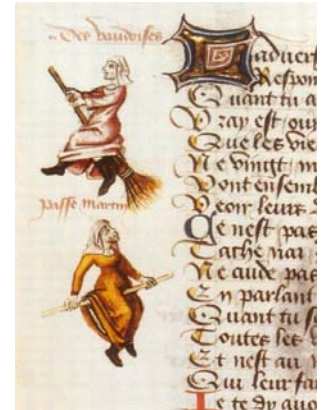 Des vaudoises
passe martin
Ladvers
Respon
Quant tu a
Vray est our
Que les vie
Ne vingt, n
Vont ensemb
Veoir leurs d
Ce nest pas
Tache nar
Ne cuide pas
En parlant
Quant tu
Toutes les
Et nest au
Qui leur fa
Je te dy auo